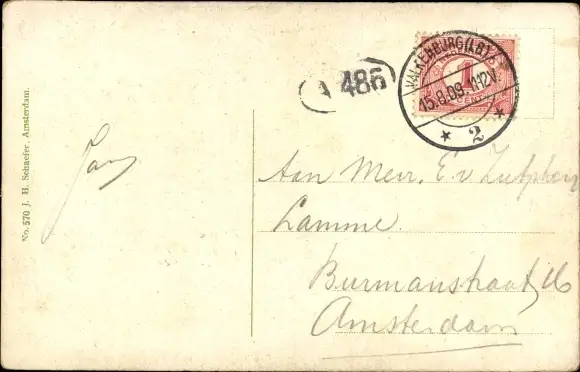 No. 570 J. H. Schaefer, Amsterdam.
Jan
486
VALKENBURG (LB)
15.8.09. 11-12V.
2
1
CENT
Aan Mevr. E. v. Zutphen
Lamme.
Burmanstraat 16
Amsterdam